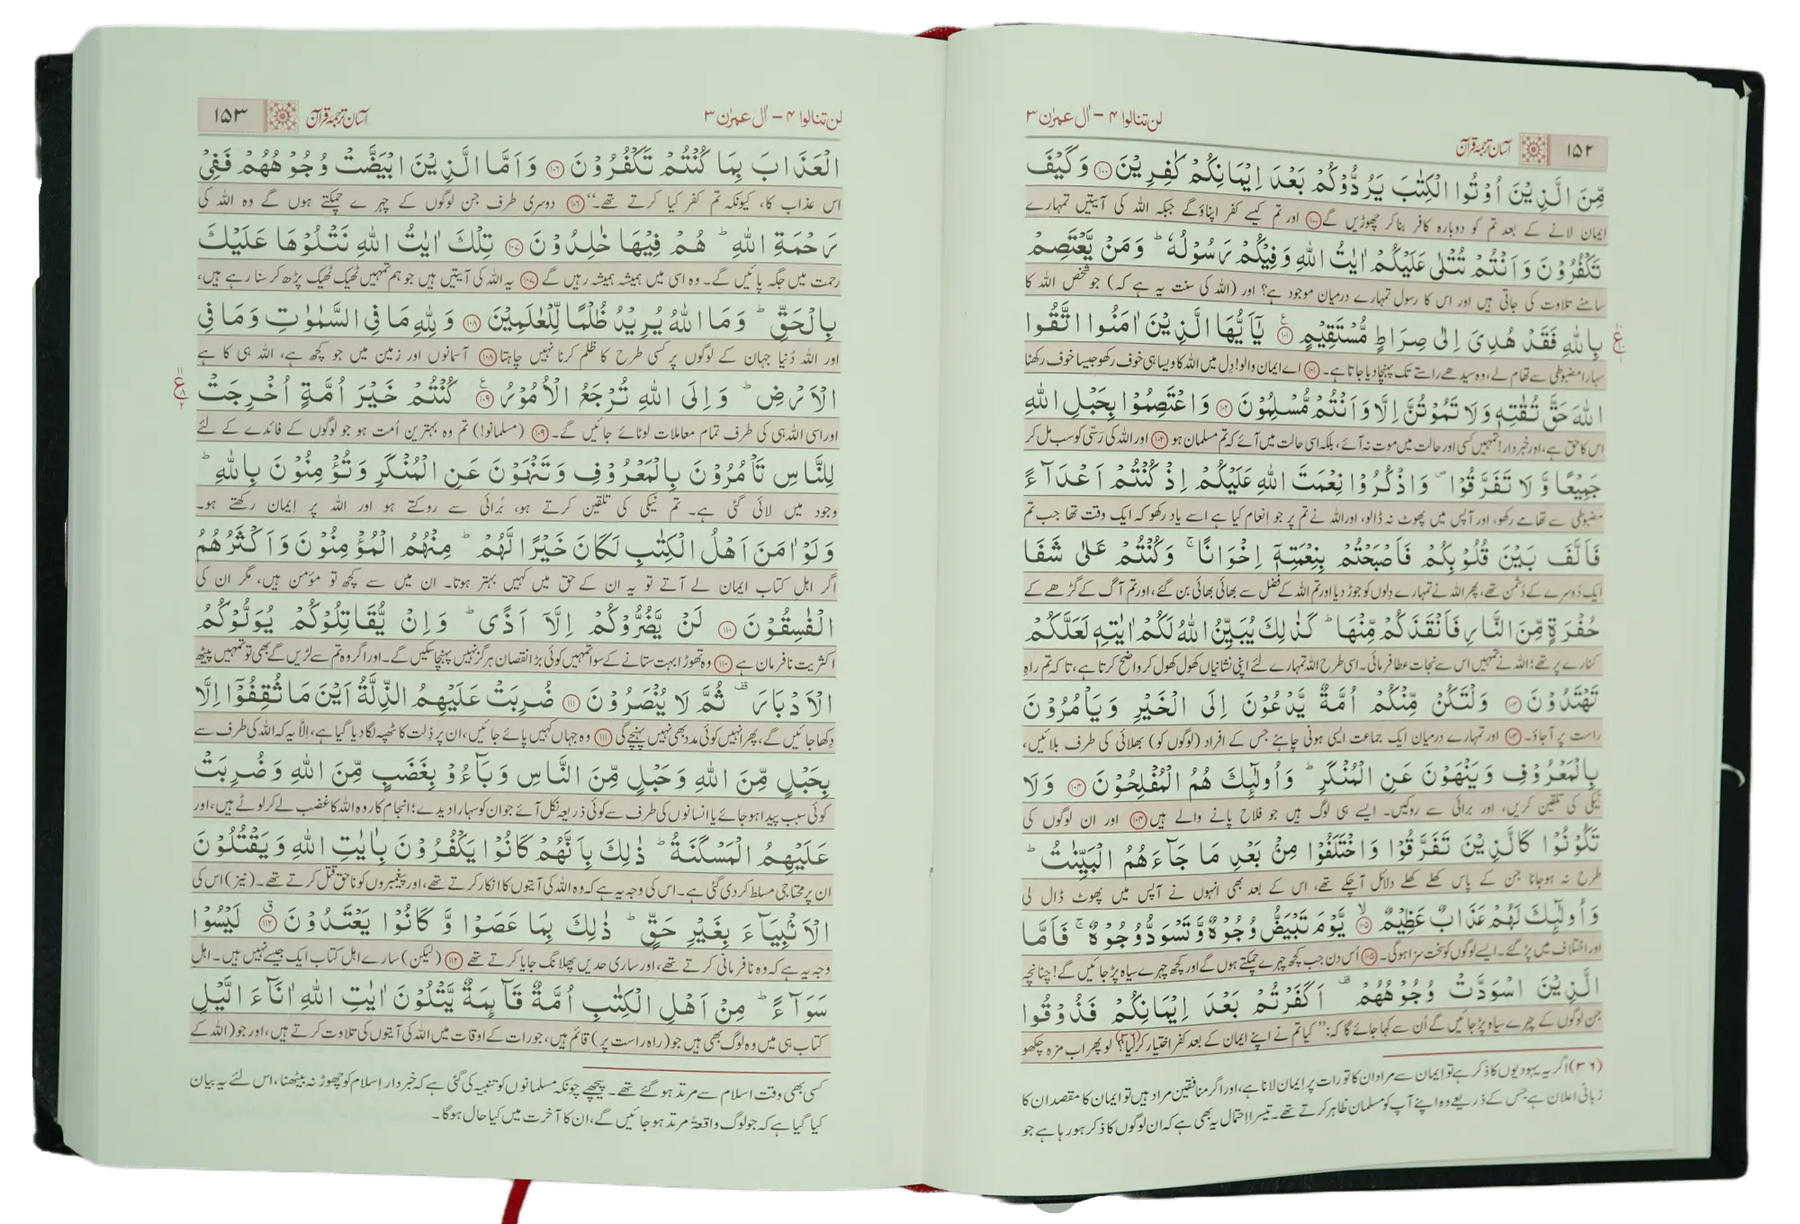 ۱۵۲ آسان ترجمۂ قرآن لن تنالوا ۴ – اٰل عمرٰن ۳
مِّنَ الَّذِيۡنَ اُوۡتُوا الۡكِتٰبَ يَرُدُّوۡكُمۡ بَعۡدَ اِيۡمَانِكُمۡ كٰفِرِيۡنَ ۝۱۰۰ وَكَيۡفَ
ایمان لانے کے بعد تم کو دوبارہ کافر بنا کر چھوڑیں گے ۝۱۰۰ اور تم کیسے کفر اپناؤ گے جبکہ اللہ کی آیتیں تمہارے
تَكۡفُرُوۡنَ وَاَنۡتُمۡ تُتۡلٰى عَلَيۡكُمۡ اٰيٰتُ اللّٰهِ وَفِيۡكُمۡ رَسُوۡلُهٗ ؕ وَمَنۡ يَّعۡتَصِمۡ
سامنے تلاوت کی جاتی ہیں اور اس کا رسول تمہارے درمیان موجود ہے؟ اور (اللہ کی سنت یہ ہے کہ) جو شخص اللہ کا
بِاللّٰهِ فَقَدۡ هُدِىَ اِلٰى صِرَاطٍ مُّسۡتَقِيۡمٍ ۝۱۰۱ يٰۤاَيُّهَا الَّذِيۡنَ اٰمَنُوا اتَّقُوا
سہارا مضبوطی سے تھام لے، وہ سیدھے راستے تک پہنچا دیا جاتا ہے۔ ۝۱۰۱ اے ایمان والو! دِل میں اللہ کا ویسا ہی خوف رکھو جیسا خوف رکھنا
اللّٰهَ حَقَّ تُقٰتِهٖ وَلَا تَمُوۡتُنَّ اِلَّا وَاَنۡتُمۡ مُّسۡلِمُوۡنَ ۝۱۰۲ وَاعۡتَصِمُوۡا بِحَبۡلِ اللّٰهِ
اس کا حق ہے، اور خبردار! تمہیں کسی اور حالت میں موت نہ آئے، بلکہ اسی حالت میں آئے کہ تم مسلمان ہو ۝۱۰۲ اور اللہ کی رَسّی کو سب مل کر
جَمِيۡعًا وَّلَا تَفَرَّقُوۡا ۪ وَاذۡكُرُوۡا نِعۡمَتَ اللّٰهِ عَلَيۡكُمۡ اِذۡ كُنۡتُمۡ اَعۡدَآءً
مضبوطی سے تھامے رکھو، اور آپس میں پھوٹ نہ ڈالو، اور اللہ نے تم پر جو اِنعام کیا ہے اسے یاد رکھو کہ ایک وقت تھا جب تم
فَاَلَّفَ بَيۡنَ قُلُوۡبِكُمۡ فَاَصۡبَحۡتُمۡ بِنِعۡمَتِهٖۤ اِخۡوَانًا ۚ وَكُنۡتُمۡ عَلٰى شَفَا
ایک دُوسرے کے دُشمن تھے، پھر اللہ نے تمہارے دِلوں کو جوڑ دیا اور تم اللہ کے فضل سے بھائی بھائی بن گئے، اور تم آگ کے گڑھے کے
حُفۡرَةٍ مِّنَ النَّارِ فَاَنۡقَذَكُمۡ مِّنۡهَا ؕ كَذٰلِكَ يُبَيِّنُ اللّٰهُ لَكُمۡ اٰيٰتِهٖ لَعَلَّكُمۡ
کنارے پر تھے؛ اللہ نے تمہیں اس سے نجات عطا فرمائی۔ اسی طرح اللہ تمہارے لئے اپنی نشانیاں کھول کھول کر واضح کرتا ہے، تاکہ تم راہِ
تَهۡتَدُوۡنَ ۝۱۰۳ وَلۡتَكُنۡ مِّنۡكُمۡ اُمَّةٌ يَّدۡعُوۡنَ اِلَى الۡخَيۡرِ وَيَاۡمُرُوۡنَ
راست پر آجاؤ۔ ۝۱۰۳ اور تمہارے درمیان ایک جماعت ایسی ہونی چاہئے جس کے افراد (لوگوں کو) بھلائی کی طرف بلائیں،
بِالۡمَعۡرُوۡفِ وَيَنۡهَوۡنَ عَنِ الۡمُنۡكَرِ ؕ وَاُولٰٓئِكَ هُمُ الۡمُفۡلِحُوۡنَ ۝۱۰۴ وَلَا
نیکی کی تلقین کریں، اور برائی سے روکیں۔ ایسے ہی لوگ ہیں جو فلاح پانے والے ہیں ۝۱۰۴ اور ان لوگوں کی
تَكُوۡنُوۡا كَالَّذِيۡنَ تَفَرَّقُوۡا وَاخۡتَلَفُوۡا مِنۡۢ بَعۡدِ مَا جَآءَهُمُ الۡبَيِّنٰتُ ؕ
طرح نہ ہوجانا جن کے پاس کھلے کھلے دلائل آچکے تھے، اس کے بعد بھی انہوں نے آپس میں پھوٹ ڈال لی
وَاُولٰٓئِكَ لَهُمۡ عَذَابٌ عَظِيۡمٌ ۝۱۰۵ يَّوۡمَ تَبۡيَضُّ وُجُوۡهٌ وَّتَسۡوَدُّ وُجُوۡهٌ ۚ فَاَمَّا
اور اختلاف میں پڑ گئے۔ ایسے لوگوں کو سخت سزا ہوگی۔ ۝۱۰۵ اُس دن جب کچھ چہرے چمکتے ہوں گے اور کچھ چہرے سیاہ پڑ جائیں گے! چنانچہ
الَّذِيۡنَ اسۡوَدَّتۡ وُجُوۡهُهُمۡ ۟ اَكَفَرۡتُمۡ بَعۡدَ اِيۡمَانِكُمۡ فَذُوۡقُوا
جن لوگوں کے چہرے سیاہ پڑ جائیں گے اُن سے کہا جائے گا کہ: ’’کیا تم نے اپنے ایمان کے بعد کفر اختیار کر لیا؟(۳۶) لو پھر اب مزہ چکھو
(۳۶) اگر یہ یہودیوں کا ذکر ہے تو ایمان سے مراد ان کا تورات پر ایمان لانا ہے، اور اگر منافقین مراد ہیں تو ایمان کا مقصد ان کا
زبانی اعلان ہے جس کے ذریعے وہ اپنے آپ کو مسلمان ظاہر کرتے تھے۔ تیسرا احتمال یہ بھی ہے کہ ان لوگوں کا ذکر ہو رہا ہے جو
لن تنالوا ۴ – اٰل عمرٰن ۳ آسان ترجمۂ قرآن ۱۵۳
الۡعَذَابَ بِمَا كُنۡتُمۡ تَكۡفُرُوۡنَ ۝۱۰۶ وَاَمَّا الَّذِيۡنَ ابۡيَضَّتۡ وُجُوۡهُهُمۡ فَفِىۡ
اس عذاب کا، کیونکہ تم کفر کیا کرتے تھے۔‘‘ ۝۱۰۶ دوسری طرف جن لوگوں کے چہرے چمکتے ہوں گے وہ اللہ کی
رَحۡمَةِ اللّٰهِ ؕ هُمۡ فِيۡهَا خٰلِدُوۡنَ ۝۱۰۷ تِلۡكَ اٰيٰتُ اللّٰهِ نَتۡلُوۡهَا عَلَيۡكَ
رحمت میں جگہ پائیں گے۔ وہ اسی میں ہمیشہ ہمیشہ رہیں گے ۝۱۰۷ یہ اللہ کی آیتیں ہیں جو ہم تمہیں ٹھیک ٹھیک پڑھ کر سنا رہے ہیں،
بِالۡحَقِّ ؕ وَمَا اللّٰهُ يُرِيۡدُ ظُلۡمًا لِّلۡعٰلَمِيۡنَ ۝۱۰۸ وَلِلّٰهِ مَا فِى السَّمٰوٰتِ وَمَا فِى
اور اللہ دُنیا جہان کے لوگوں پر کسی طرح کا ظلم کرنا نہیں چاہتا ۝۱۰۸ آسمانوں اور زمین میں جو کچھ ہے، اللہ ہی کا ہے
الۡاَرۡضِ ؕ وَاِلَى اللّٰهِ تُرۡجَعُ الۡاُمُوۡرُ ۝۱۰۹ كُنۡتُمۡ خَيۡرَ اُمَّةٍ اُخۡرِجَتۡ
اور اسی اللہ ہی کی طرف تمام معاملات لوٹائے جائیں گے۔ ۝۱۰۹ (مسلمانو!) تم وہ بہترین اُمت ہو جو لوگوں کے فائدے کے لئے
لِلنَّاسِ تَاۡمُرُوۡنَ بِالۡمَعۡرُوۡفِ وَتَنۡهَوۡنَ عَنِ الۡمُنۡكَرِ وَتُؤۡمِنُوۡنَ بِاللّٰهِ ؕ
وجود میں لائی گئی ہے۔ تم نیکی کی تلقین کرتے ہو، بُرائی سے روکتے ہو اور اللہ پر ایمان رکھتے ہو۔
وَلَوۡ اٰمَنَ اَهۡلُ الۡكِتٰبِ لَكَانَ خَيۡرًا لَّهُمۡ ؕ مِنۡهُمُ الۡمُؤۡمِنُوۡنَ وَاَكۡثَرُهُمُ
اگر اہلِ کتاب ایمان لے آتے تو یہ ان کے حق میں کہیں بہتر ہوتا۔ ان میں سے کچھ تو مؤمن ہیں، مگر ان کی
الۡفٰسِقُوۡنَ ۝۱۱۰ لَنۡ يَّضُرُّوۡكُمۡ اِلَّاۤ اَذًى ؕ وَاِنۡ يُّقَاتِلُوۡكُمۡ يُوَلُّوۡكُمُ
اکثریت نافرمان ہے ۝۱۱۰ وہ تھوڑا بہت ستانے کے سوا تمہیں کوئی بڑا نقصان ہرگز نہیں پہنچا سکیں گے۔ اور اگر وہ تم سے لڑیں گے بھی تو تمہیں پیٹھ
الۡاَدۡبَارَ ۟ ثُمَّ لَا يُنۡصَرُوۡنَ ۝۱۱۱ ضُرِبَتۡ عَلَيۡهِمُ الذِّلَّةُ اَيۡنَ مَا ثُقِفُوۡۤا اِلَّا
دِکھا جائیں گے، پھر انہیں کوئی مدد بھی نہیں پہنچے گی ۝۱۱۱ وہ جہاں کہیں پائے جائیں، ان پر ذِلت کا ٹھپہ لگا دیا گیا ہے، الّا یہ کہ اللہ کی طرف سے
بِحَبۡلٍ مِّنَ اللّٰهِ وَحَبۡلٍ مِّنَ النَّاسِ وَبَآءُوۡ بِغَضَبٍ مِّنَ اللّٰهِ وَضُرِبَتۡ
کوئی سبب پیدا ہو جائے یا انسانوں کی طرف سے کوئی ذریعہ نکل آئے جو ان کو سہارا دیدے؛ انجام کار وہ اللہ کا غضب لے کر لوٹے ہیں، اور
عَلَيۡهِمُ الۡمَسۡكَنَةُ ؕ ذٰلِكَ بِاَنَّهُمۡ كَانُوۡا يَكۡفُرُوۡنَ بِاٰيٰتِ اللّٰهِ وَيَقۡتُلُوۡنَ
ان پر محتاجی مسلط کر دی گئی ہے۔ اس کی وجہ یہ ہے کہ وہ اللہ کی آیتوں کا انکار کرتے تھے، اور پیغمبروں کو ناحق قتل کرتے تھے۔ (نیز) اس کی
الۡاَنۡۢبِيَآءَ بِغَيۡرِ حَقٍّ ؕ ذٰلِكَ بِمَا عَصَوۡا وَّكَانُوۡا يَعۡتَدُوۡنَ ۝۱۱۲ لَيۡسُوۡا
وجہ یہ ہے کہ وہ نافرمانی کرتے تھے، اور ساری حدیں پھلانگ جایا کرتے تھے ۝۱۱۲ (لیکن) سارے اہلِ کتاب ایک جیسے نہیں ہیں۔ اہلِ
سَوَآءً ؕ مِنۡ اَهۡلِ الۡكِتٰبِ اُمَّةٌ قَآئِمَةٌ يَّتۡلُوۡنَ اٰيٰتِ اللّٰهِ اٰنَآءَ الَّيۡلِ
کتاب ہی میں وہ لوگ بھی ہیں جو (راہِ راست پر) قائم ہیں، جو رات کے اوقات میں اللہ کی آیتوں کی تلاوت کرتے ہیں، اور جو (اللہ کے
کسی بھی وقت اسلام سے مرتد ہو گئے تھے۔ پیچھے چونکہ مسلمانوں کو تنبیہ کی گئی ہے کہ خبردار اسلام کو چھوڑ نہ بیٹھنا، اس لئے یہ بیان
کیا گیا ہے کہ جو لوگ واقعۃً مرتد ہو جائیں گے، ان کا آخرت میں کیا حال ہوگا۔